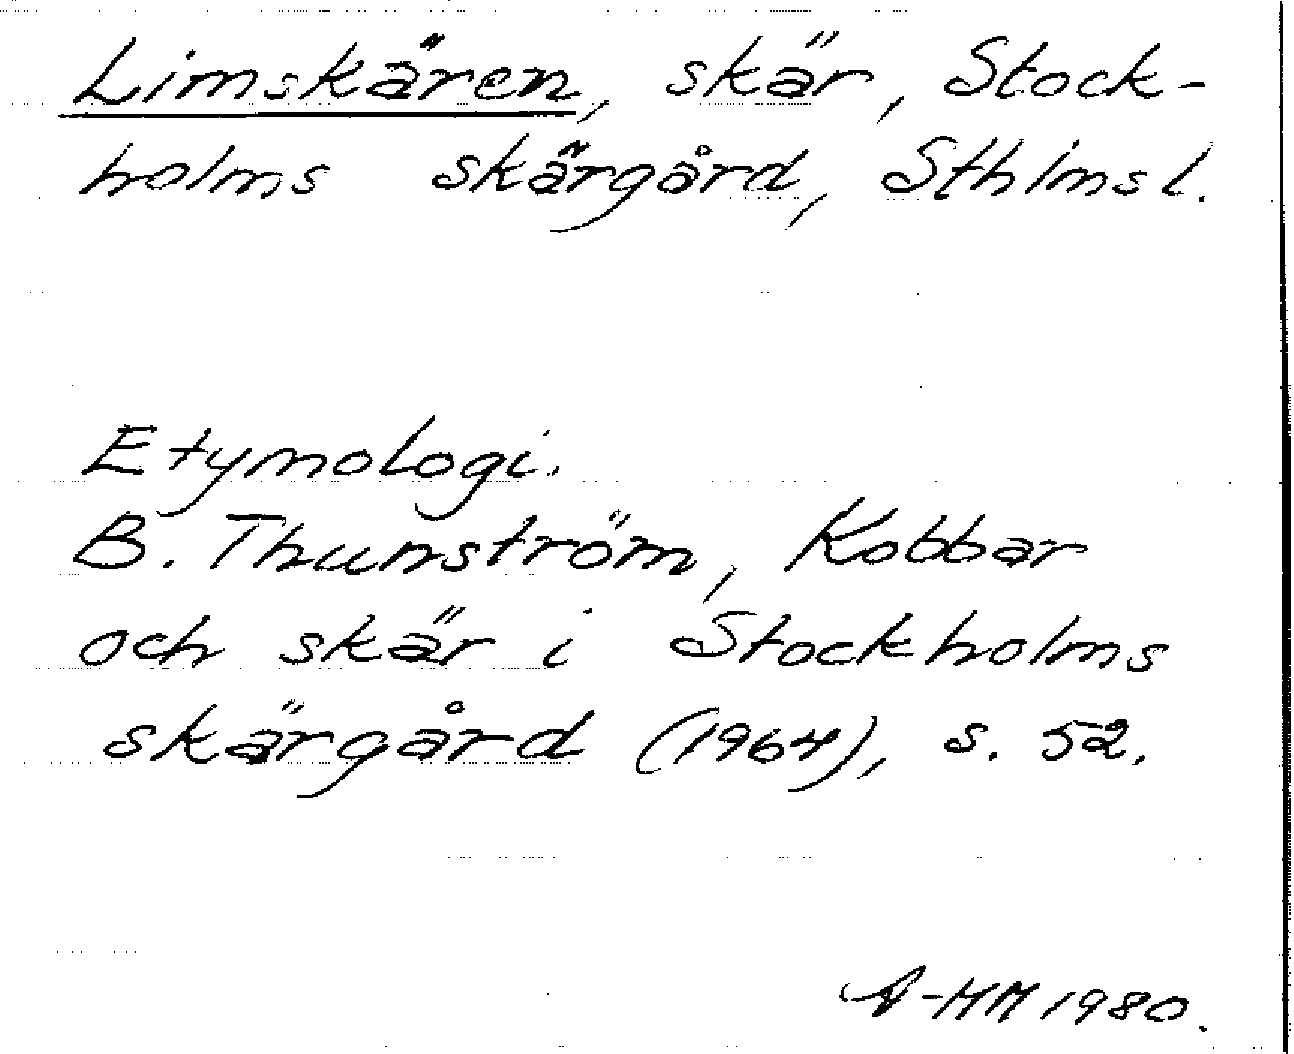 Limskären, skär, Stock-
holms skärgård, Sthlmsl.
Etymologi.
B. Thunström, Kobbar
och skär i Stockholms
skärgård (1964), s. 52.
A-MM 1980.